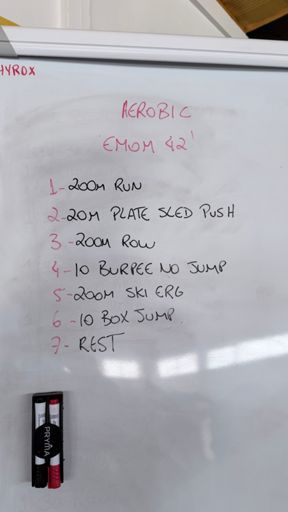 HYROX
AEROBIC
EMOM 42'
1-200M RUN
2-20M PLATE SLED PUSH
3-200M ROW
4-10 BURPEE NO JUMP
5-200M SKI ERG
6-10 BOX JUMP.
7- REST
PRYMA